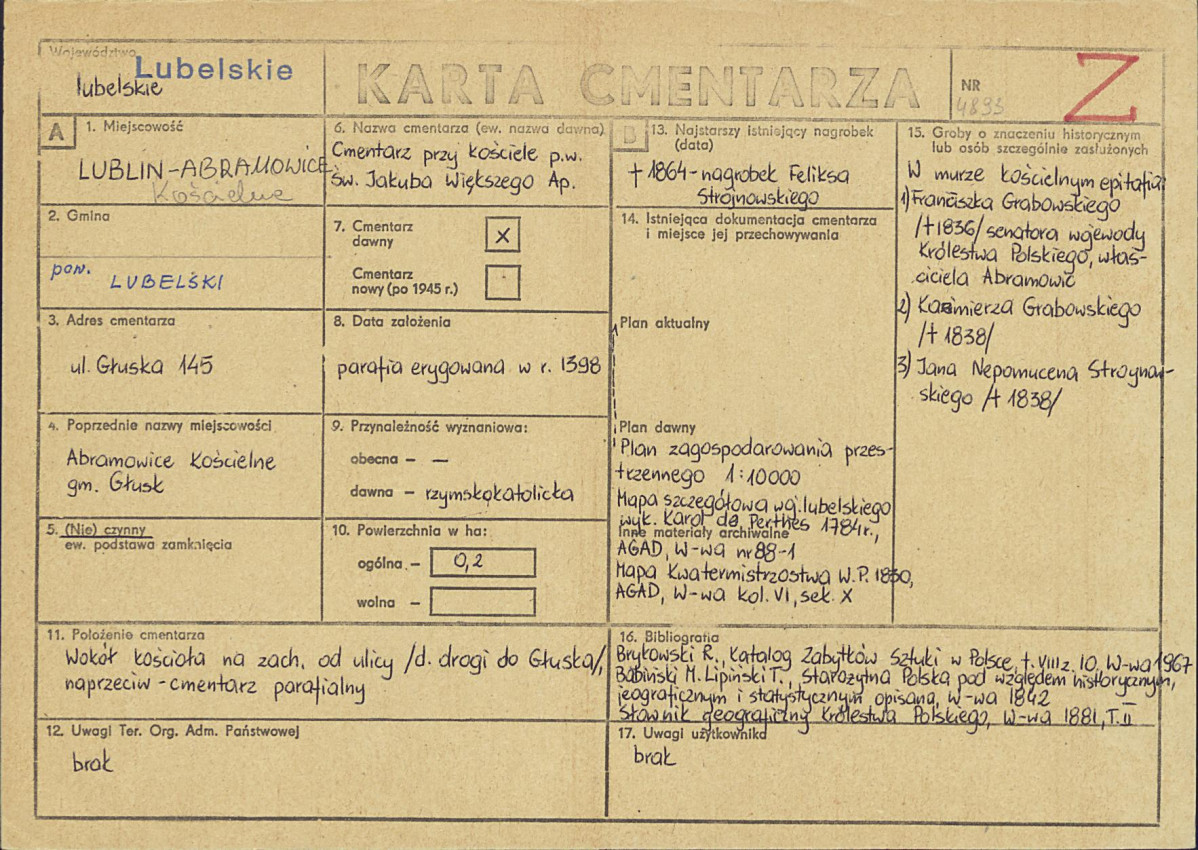 Województwo
Lubelskie
lubelskie
KARTA CMENTARZA
NR
4893
Z
A
1. Miejscowość
LUBLIN-ABRAMOWICE
Kościelne
2. Gmina
pow. LUBELSKI
3. Adres cmentarza
ul. Głuska 145
4. Poprzednie nazwy miejscowości
Abramowice Kościelne
gm. Głusk
5. (Nie) czynny
ew. podstawa zamknięcia
6. Nazwa cmentarza (ew. nazwa dawna)
Cmentarz przy kościele p.w.
św. Jakuba Większego Ap.
7. Cmentarz
dawny
x
Cmentarz
nowy (po 1945 r.)
8. Data założenia
parafia erygowana w r. 1398
9. Przynależność wyznaniowa:
obecna – –
dawna – rzymskokatolicka
10. Powierzchnia w ha:
ogólna – 0,2
wolna –
11. Położenie cmentarza
Wokół kościoła na zach. od ulicy /d. drogi do Głuska/,
naprzeciw - cmentarz parafialny
12. Uwagi Ter. Org. Adm. Państwowej
brak
B
13. Najstarszy istniejący nagrobek
(data)
+ 1864 - nagrobek Feliksa
Strojnowskiego
14. Istniejąca dokumentacja cmentarza
i miejsce jej przechowywania
Plan aktualny
Plan dawny
Plan zagospodarowania przes-
trzennego 1:10000
Mapa szczegółowa woj. lubelskiego
wyk. Karol de Perthes 1784r.,
Inne materiały archiwalne
AGAD, W-wa nr 88-1
Mapa Kwatermistrzostwa W.P. 1830,
AGAD, W-wa kol. VI, sek. X
15. Groby o znaczeniu historycznym
lub osób szczególnie zasłużonych
W murze kościelnym epitafia:
1) Franciszka Grabowskiego
/+1836/ senatora wojewody
Królestwa Polskiego, właś-
ciciela Abramowic
2) Kazimierza Grabowskiego
/+ 1838/
3) Jana Nepomucena Stroynow-
skiego /+ 1838/
16. Bibliografia
Brykowski R., Katalog Zabytków Sztuki w Polsce, t. VIII z. 10, W-wa 1967
Baliński M. Lipiński T., Starożytna Polska pod względem historycznym,
jeograficznym i statystycznym opisana, W-wa 1842
Słownik geograficzny Królestwa Polskiego, W-wa 1881, T. II
17. Uwagi użytkownika
brak